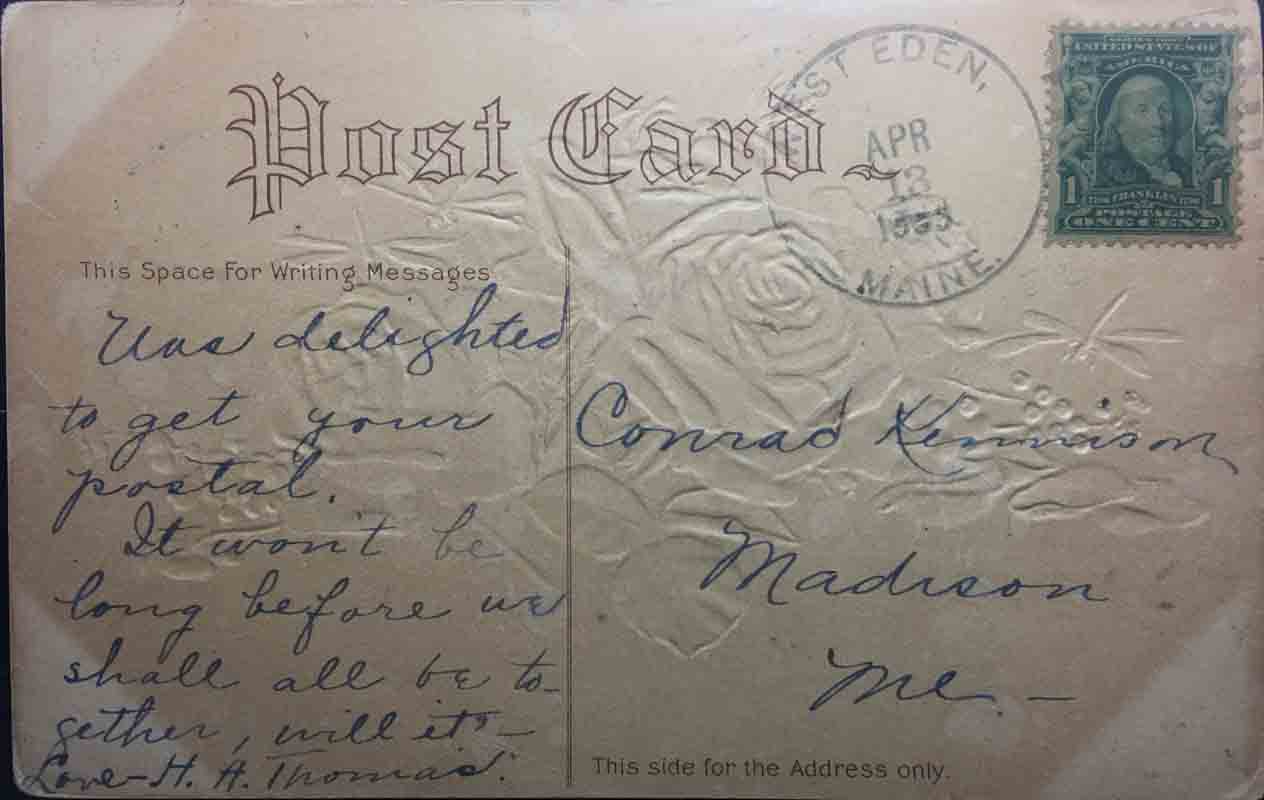 Post Card
EST EDEN,
APR
13
MAINE.
UNITED STATES OF
AMERICA
1 FRANKLIN 1
POSTAGE
ONE CENT
This Space For Writing Messages
Was delighted
to get your
postal.
It won't be
long before we
shall all be to-
gether, will it? -
Love - H. A. Thomas.
Conrad Kennison
Madison
Me. -
This side for the Address only.